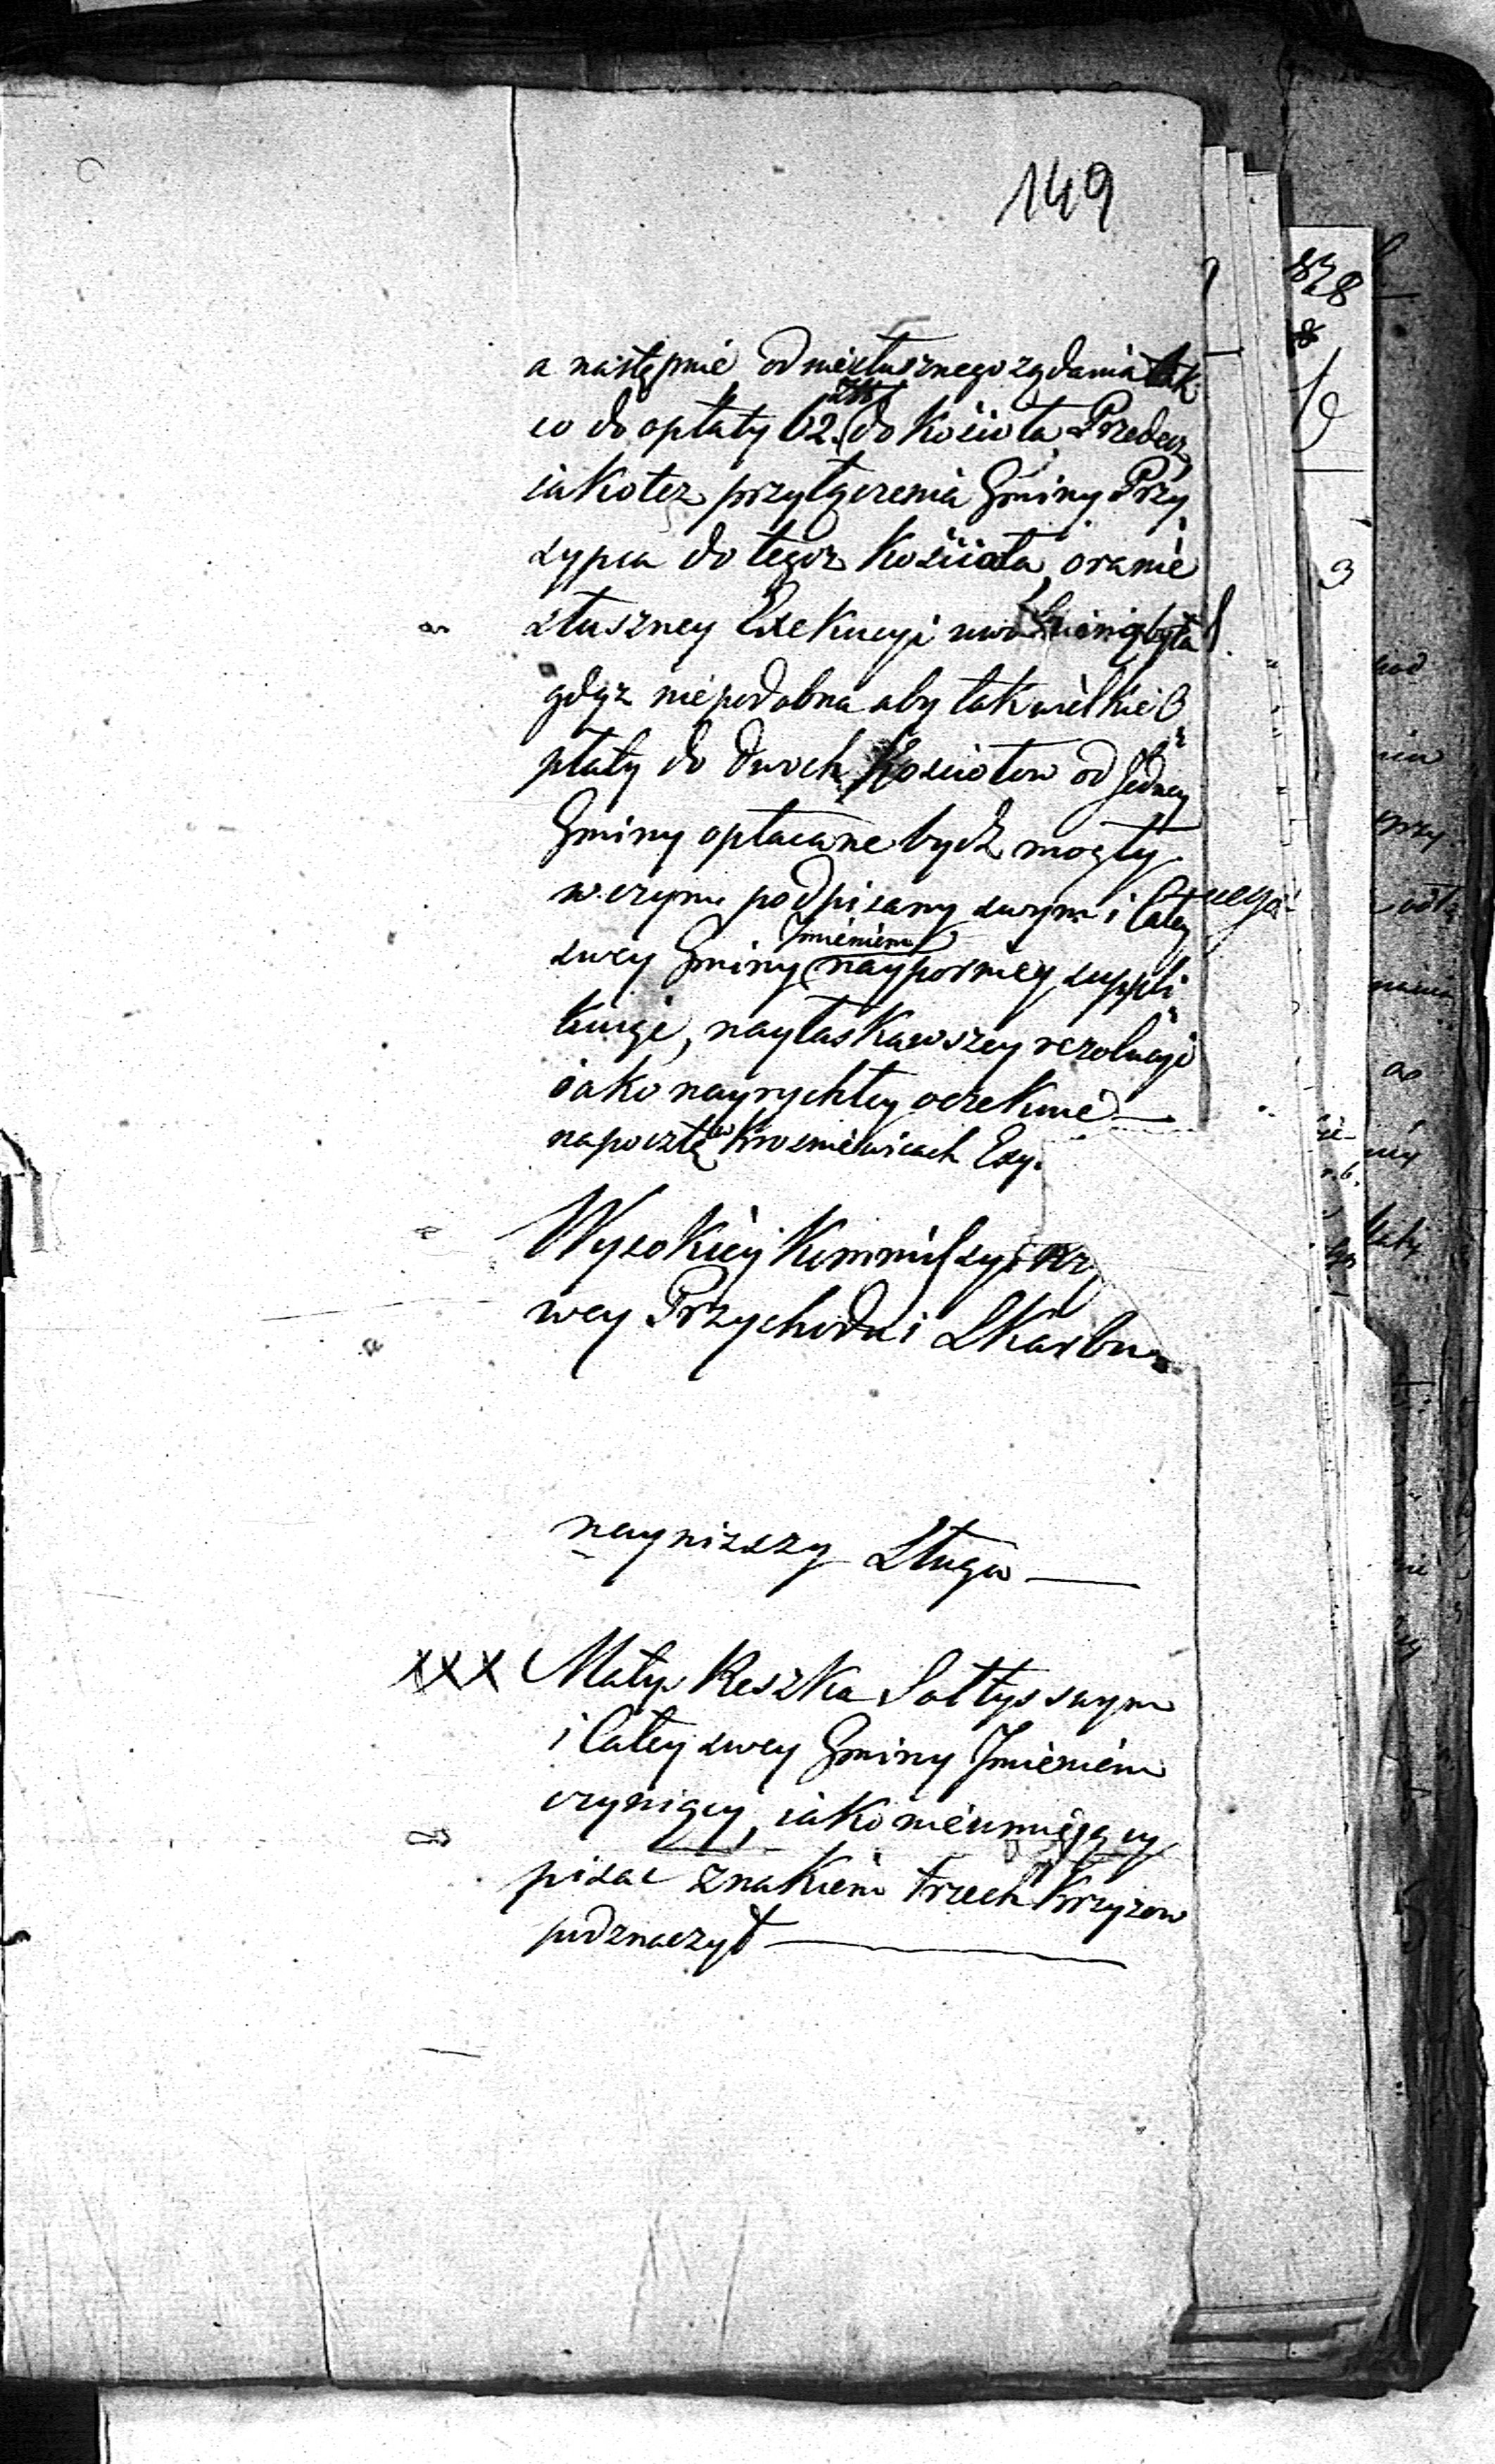 149
a następnie od niesłusznego ządania tak
co do opłaty 62. złł do Kościoła Przedecz
iakotez przyłączenia Gminy Przy
sypka do tegoz Kościoła, oraz nie
słuszney Exekucyi uwolnioną była
gdyz niepodobna aby tak wielkie O
płaty do dwoch Kosciołow od Jedney
Gminy opłacane bydz mogły
w czym podpisany swym i Całey
swey Gminy Jmieniem naypokorniey suppli
kuige, nayłaskawszey rezolucyi
iako nayrychley oczekuie —
na poczte w Krosniewicach Exp.
Wysokiey Kommissyi Rz
wey Przychodu i Skarbu
nayniższy Sługa —
XXX Matyi Reszka Sołtys swym
i Całey swey Gminy Jmieniem
czyniący, iako nieumieiący
pisac znakiem trzech Krzyzow
podznaczył —
828
3